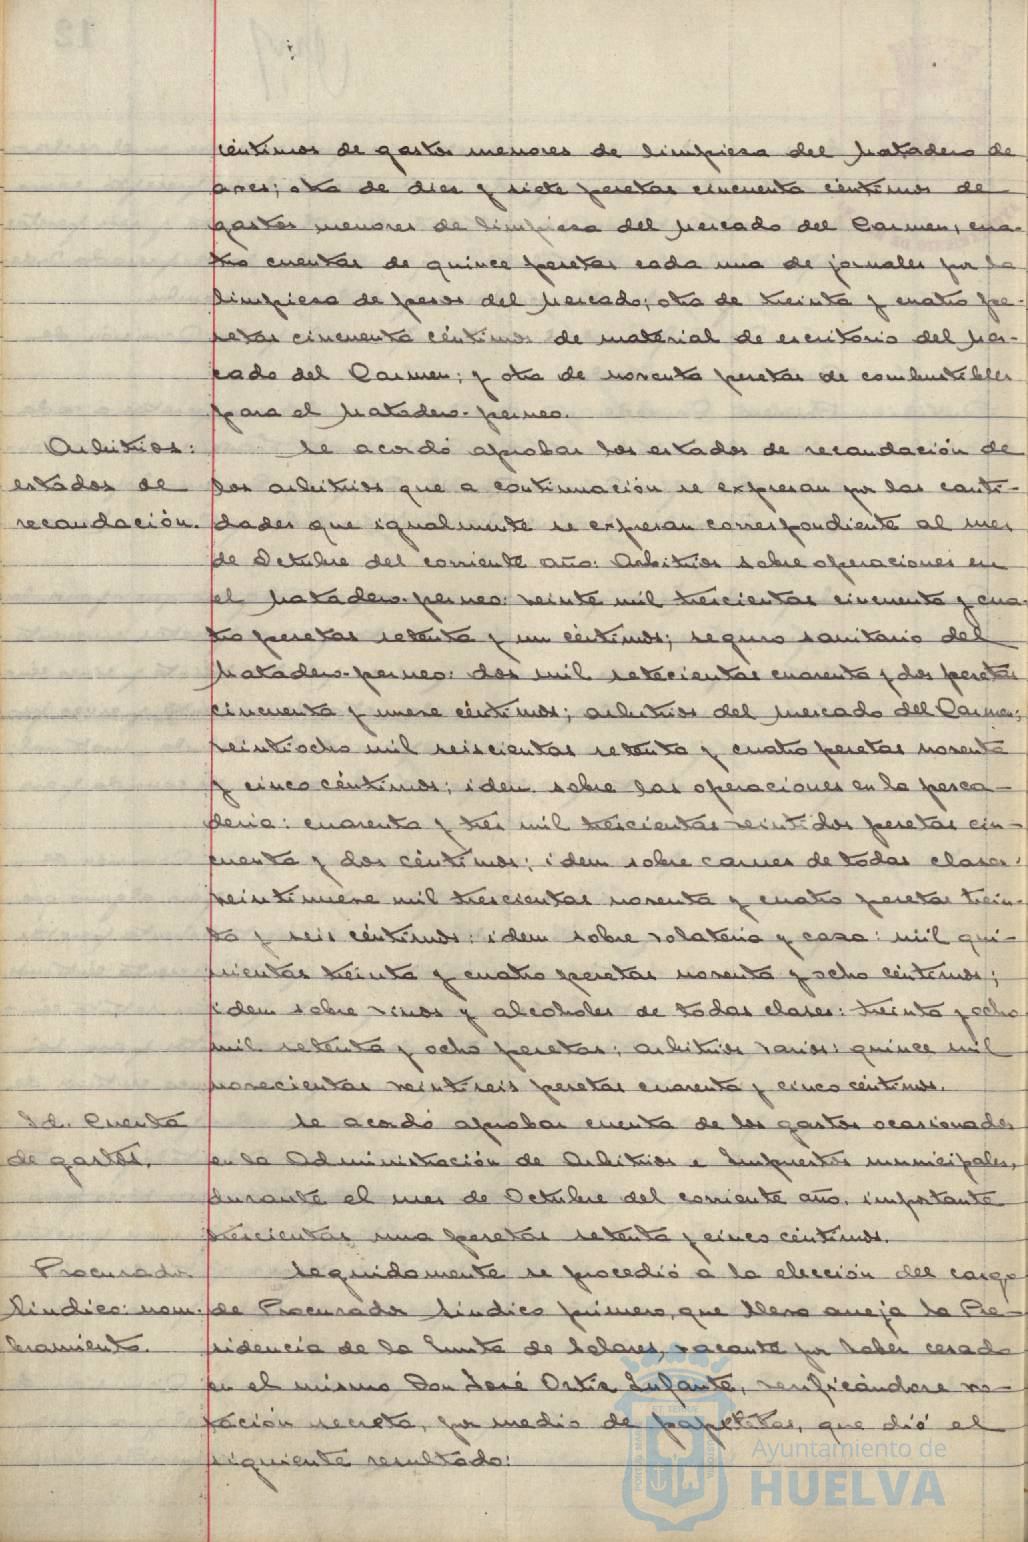 céntimos de gastos menores de limpiesa del Matadero de
aves; otra de dies y siete pesetas cincuenta céntimos de
gastos menores de limpiesa del Mercado del Carmen; cua-
tro cuentas de quince pesetas cada una de jornales por la
limpiesa de pesos del Mercado; otra de treinta y cuatro pe-
setas cincuenta céntimos de material de escritorio del Mer-
cado del Carmen; y otra de noventa pesetas de combustibles
para el Matadero-perneo.
Arbitrios:
estados de
recaudación.
Se acordó aprobar los estados de recaudación de
los arbitrios que a continuación se expresan por las canti-
dades que igualmente se expresan correspondiente al mes
de Octubre del corriente año: Arbitrios sobre operaciones en
el Matadero-perneo: veinte mil trescientas cincuenta y cua-
tro pesetas setenta y un céntimos; seguro sanitario del
Matadero-perneo: dos mil setecientas cuarenta y dos pesetas
cincuenta y nueve céntimos; arbitrios del mercado del Carmen;
veintiocho mil seiscientas setenta y cuatro pesetas noventa
y cinco céntimos; idem sobre las operaciones en la pesca-
deria: cuarenta y tres mil trescientas veintidos pesetas cin-
cuenta y dos céntimos; idem sobre carnes de todas clases:
veintinueve mil trescientas noventa y cuatro pesetas trein-
ta y seis céntimos: idem sobre volateria y casa: mil qui-
nientas treinta y cuatro pesetas noventa y ocho céntimos;
idem sobre vinos y alcoholes de todas clases: treinta y ocho
mil setenta y ocho pesetas; arbitrios varios: quince mil
novecientas veintiseis pesetas cuarenta y cinco céntimos.
Id. Cuenta
de gastos.
Se acordó aprobar cuenta de los gastos ocasionados
en la Administración de Arbitrios e Impuestos municipales,
durante el mes de Octubre del corriente año, importante
trescientas una pesetas setenta y cinco céntimos.
Procurador
Sindico: nom-
bramiento.
Seguidamente se procedió a la elección del cargo
de Procurador Sindico primero, que lleva aneja la Pre-
sidencia de la Junta de Solares, vacante por haber cesado
en el mismo Don José Ortiz Infante, verificándose vo-
tación secreta, por medio de papeletas, que dió el
siguiente resultado:
Ayuntamiento de
HUELVA